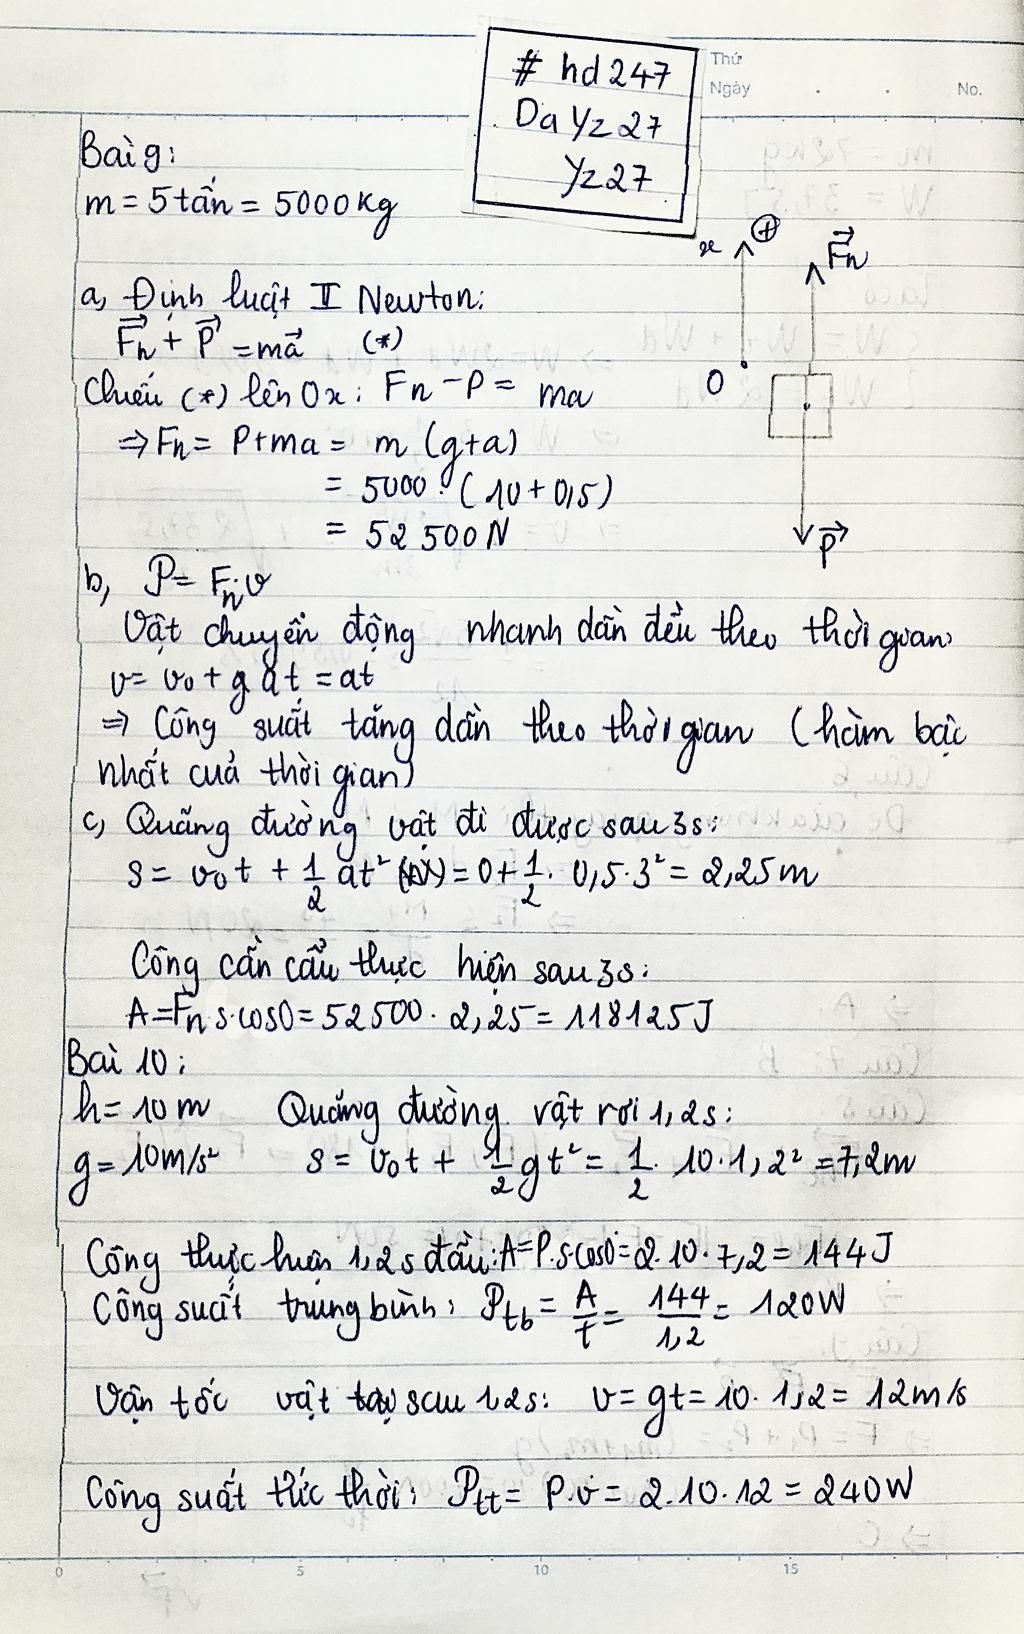 # hd247
Da Yz27
Yz27
Thứ
Ngày . . No.
Bài 9:
m = 5 tấn = 5000 kg
x ⊕
O
F⃗n
P⃗
a, Định luật II Newton:
F⃗n + P⃗ = ma⃗ (*)
Chiếu (*) lên Ox: Fn - P = ma
⇒ Fn = P + ma = m (g+a)
= 5000 . (10 + 0,5)
= 52 500 N
b, P = Fn.v
Vật chuyển động nhanh dần đều theo thời gian
v = v₀ + g at = at
⇒ Công suất tăng dần theo thời gian (hàm bậc
nhất cuả thời gian)
c, Quãng đường vật đi được sau 3s:
s = v₀t + 1/2 at² = 0 + 1/2 . 0,5 . 3² = 2,25 m
Công cần cẩu thực hiện sau 3s:
A = Fn s.cos0 = 52500 . 2,25 = 118125J
Bài 10:
h = 10 m Quãng đường vật rơi 1,2s:
g = 10m/s² s = v₀t + 1/2 gt² = 1/2 . 10 . 1,2² = 7,2m
Công thực hiện 1,2s đầu: A = P.s.cos0 = 2.10.7,2 = 144J
Công suất trung bình: Ptb = A/t = 144/1,2 = 120W
Vận tốc vật sau 1,2s: v = gt = 10 . 1,2 = 12m/s
Công suất tức thời: Ptt = P.v = 2.10.12 = 240W
0 5 10 15